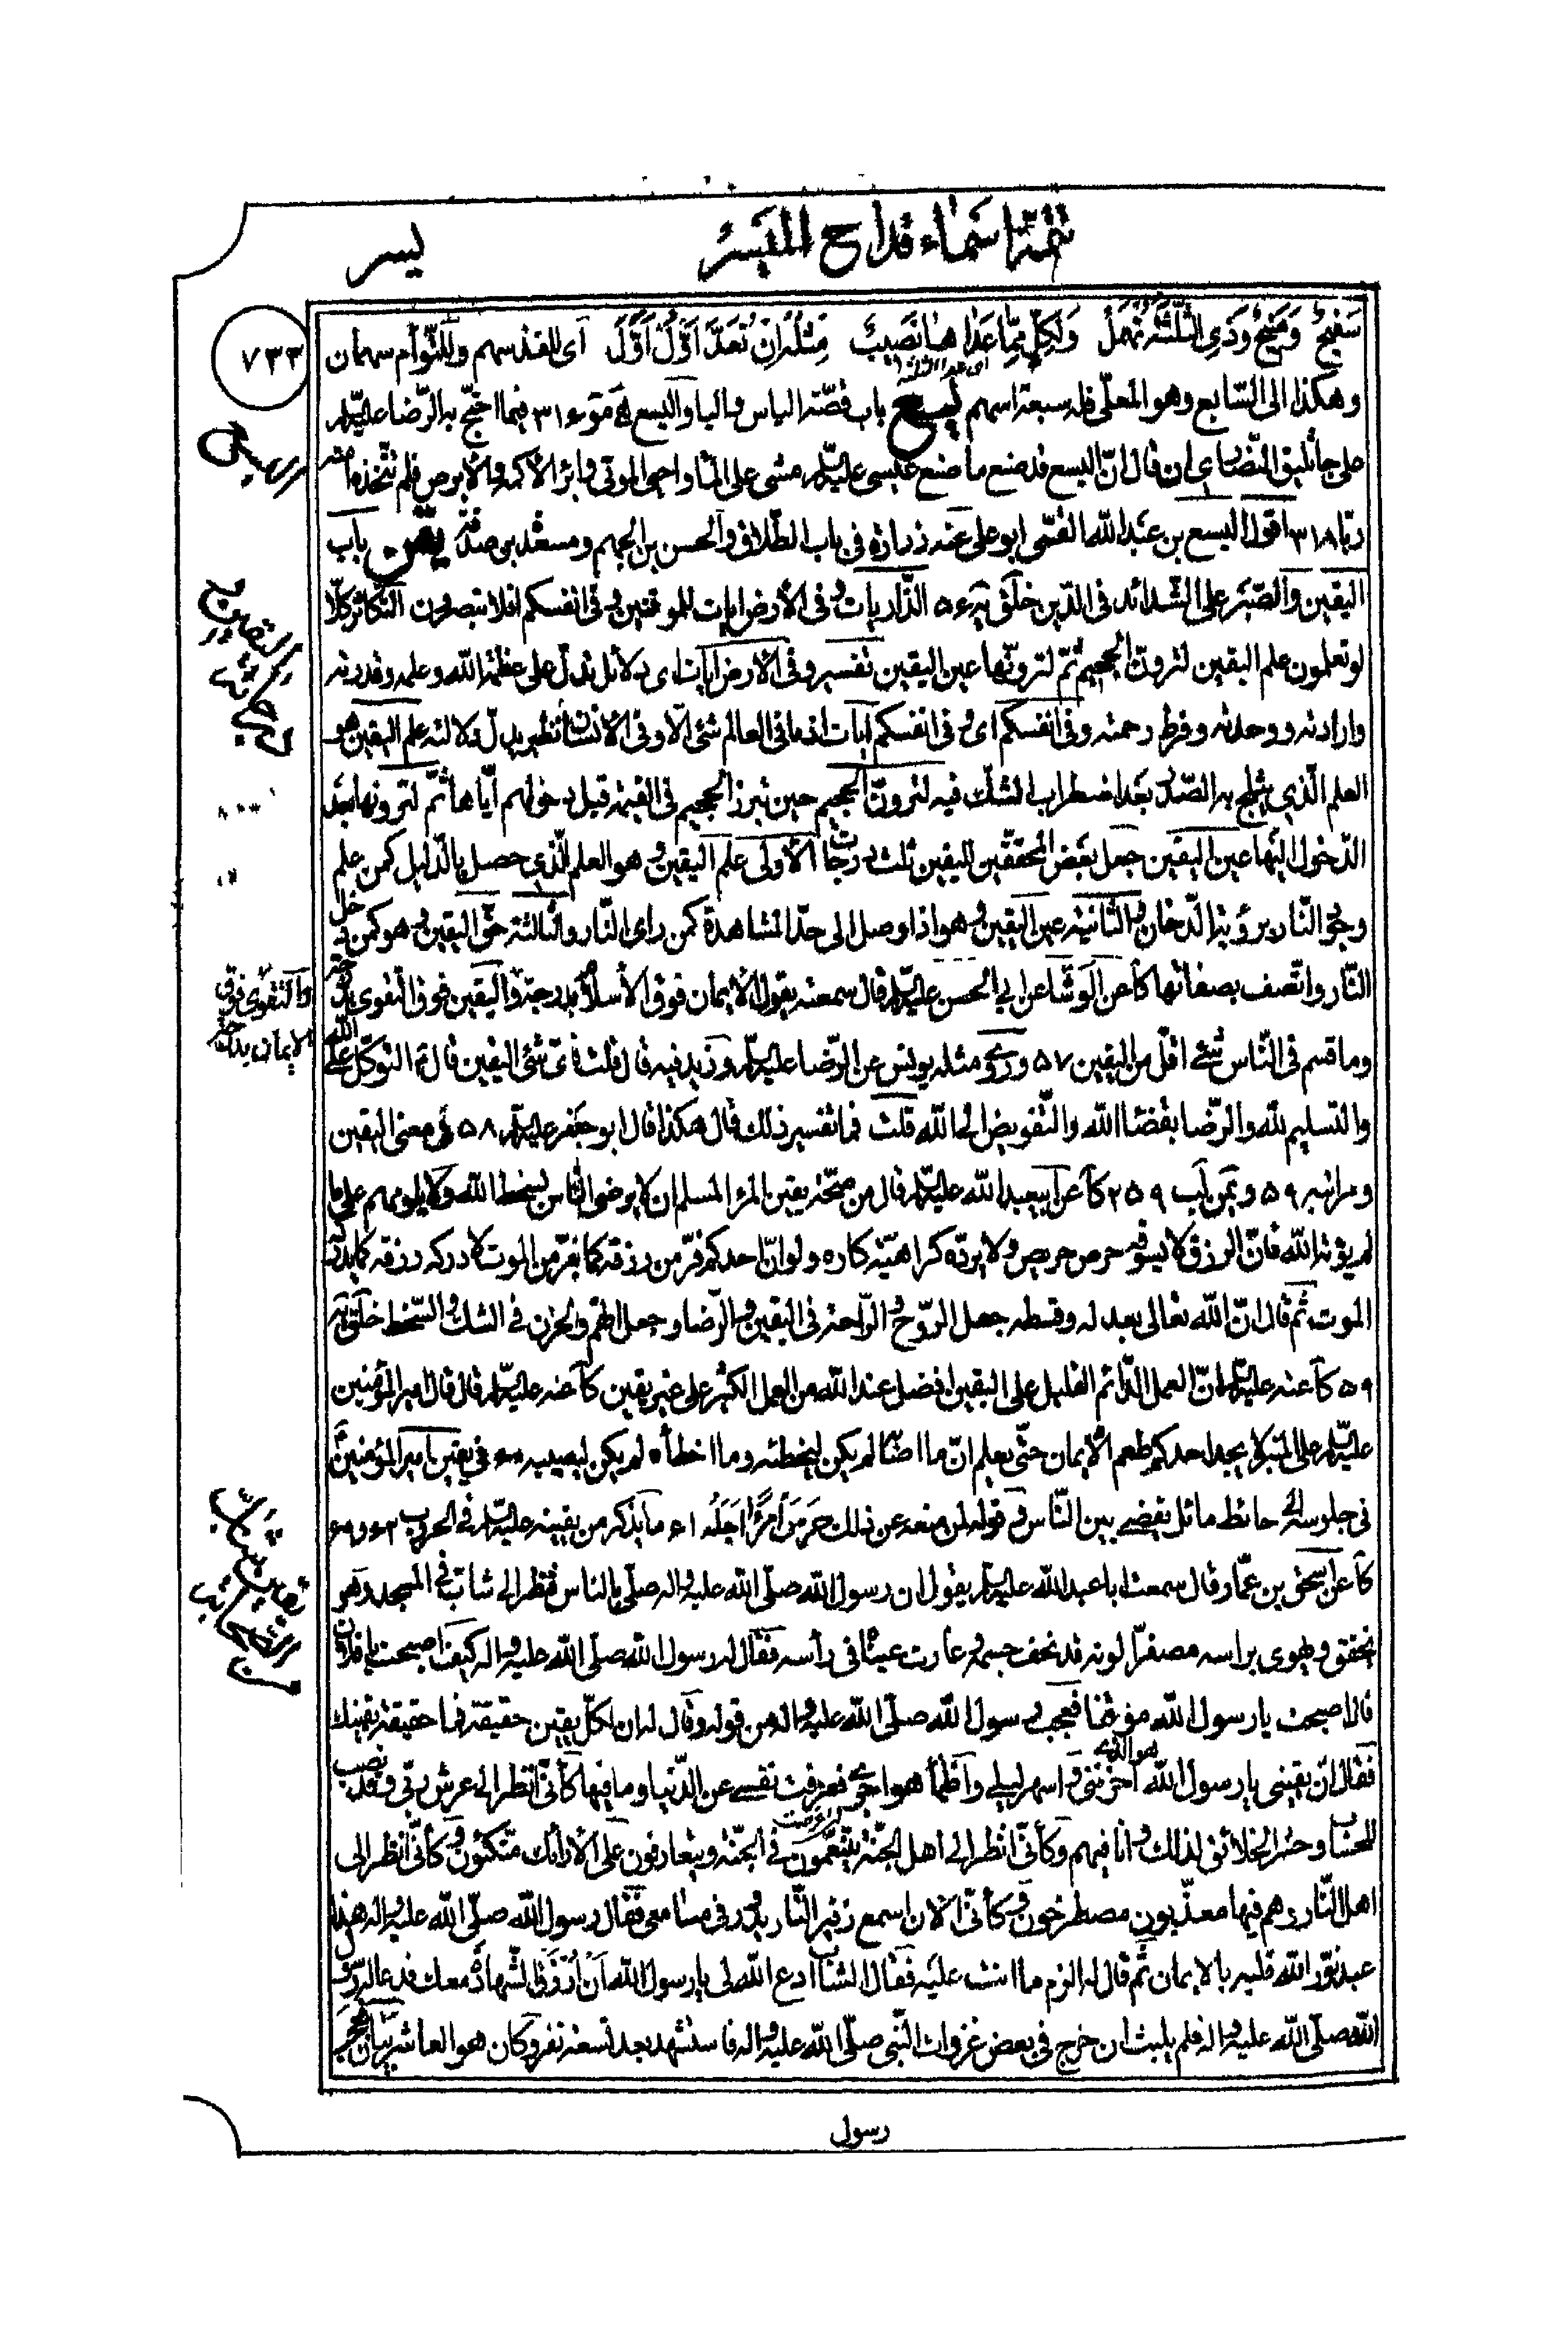 تتمّة اسماء قداح الميسر
يسر
٧٣٣
سَفيحٌ وَمَنيحٌ وَذي الثلثة تُهمَلُ وَلكلٍّ مِمّا عَداها نَصيبٌ مِثلُه اِن تُعَدَّ اَوّلُ اَوّلَ اى للفذ سهم وللتّوأم سهمان
وهكذا الى السّابع وهو المعلّى فله سبعة اسهم يسع باب قصّة الياس واليا واليسع ٣١ فيما احتجّ به الرّضا عليه السلم
على جاثليق النّصارى ان قال انّ اليسع قد صنع ما صنع عيسى عليه السلم مشى على الماء واحيى الموتى وابرأ الاكمه والابرص فلم تتّخذه امّته
ربّا ٣١٨ اقول اليسع بن عبد الله القمّى ابو على عنه زرارة فى باب الطّلاق والحسن بن الجهم ومسعدة بن صدقة يقن باب
اليقين والصّبر على الشدائد فى الدّين خلق ٥٦ الذّاريات وفى الأرض ايات للموقنين وفى انفسكم افلا تبصرون التكاثر كلّا
لو تعلمون علم اليقين لترونّ الجحيم ثمّ لترونّها عين اليقين تفسير وفى الارض ايات اى دلائل تدلّ على عظمة الله وعلمه وقدرته
وارادته ووحدته وفرط رحمته وفى انفسكم اى وفى انفسكم آيات اذ ما فى العالم شئ الّا وفى الانسان نظير يدلّ دلالته علم اليقين هو
العلم الّذى يثلج به الصّدر بعد اضطراب الشكّ فيه لترونّ الجحيم حين تبرز الجحيم فى القيمة قبل دخولهم ايّاها ثمّ لترونها بعد
الدّخول اليها عين اليقين جعل بعض المحققّين لليقين ثلث درجات الاولى علم اليقين وهو العلم الّذى حصل بالدّليل كمن علم
وجود النّار برؤية الدّخان والثانية عين اليقين وهو اذا وصل الى حدّ المشاهدة كمن راى النّار والثالثة حقّ اليقين وهو كمن دخل
النّار واتّصف بصفاتها كا عن الوشّا عن ابى الحسن عليه السلم قال سمعته يقول الايمان فوق الأسلام بدرجة واليقين فوق التقوى بدرجة
والتقوى فوق الايمان بدرجة
وما قسم فى النّاس شئ اقلّ من اليقين ٥٧ وروى مثله يونس عن الرّضا عليه السلم وزيد فيه قال قلت فاىّ شئ اليقين قال التوكّل على الله
والتسليم لله والرّضا بقضاء الله والتّفويض الى الله قلت فما تفسير ذلك قال هكذا قال ابو جعفر عليه السلم ٥٨ فى معنى اليقين
ومراتبه ٥٩ ويمن ٢٥٩ كا عن ابيعبد الله عليه السلم قال من صحّة يقين المرء المسلم ان لا يرضى النّاس بسخط الله ولا يلومهم على ما
لم يؤته الله فانّ الرزق لا يسوقه حرص حريص ولا يردّه كراهيّة كاره ولو انّ احدكم فرّ من رزقه كما يفرّ من الموت لادركه رزقه كما يدركه
الموت ثمّ قال انّ الله تعالى بعدله وقسطه جعل الرّوح والرّاحة فى اليقين والرّضا وجعل الهمّ والحزن فى الشك والسّخط خلق
٥٩ كا عنه عليه السلم انّ العمل الدّائم القليل على اليقين افضل عند الله من العمل الكثير على غير يقين كا عنه عليه السلم قال قال امير المؤمنين
عليه السلم على المنبر لا يجد احدكم طعم الايمان حتّى يعلم انّ ما اصابه لم يكن ليخطئه وما اخطأه لم يكن ليصيبه ٦٠ فى يقين امير المؤمنين
فى جلوسه الى حائط مائل يقضى بين النّاس وقوله لمن منعه عن ذلك حَرَسَ امرًا اجَلُه ٦١ ما يذكر من يقينه عليه السلم فى الحروب ٦٢
كا عن اسحق بن عمّار قال سمعت ابا عبد الله عليه السلم يقول ان رسول الله صلّى الله عليه واله صلّى بالناس فنظر الى شابّ فى المسجد وهو
يخفق ويهوى براسه مصفرّا لونه قد نحف جسمه وغارت عيناه فى رأسه فقال له رسول الله صلّى الله عليه واله كيف اصبحت يا فلان
قال اصبحت يا رسول الله موقنا فعجب رسول الله صلّى الله عليه واله من قوله وقال له ان لكلّ يقين حقيقة فما حقيقة يقينك
فقال انّ يقينى يا رسول الله هو الّذى احزننى واسهر ليلى واظمأ هواجرى فعزفت نفسى عن الدّنيا وما فيها كأنّى انظر الى عرش ربّى وقد نصب
للحساب وحشر الخلائق لذلك وانا فيهم وكأنّى انظر الى اهل الجنّة يتنعّمون فى الجنّة ويتعارفون على الارائك متّكئون وكأنّى انظر الى
اهل النّار وهم فيها معذّبون مصطرخون وكأنّى الان اسمع زفير النّار يدور فى مسامعى فقال رسول الله صلّى الله عليه واله هذا
عبد نوّر الله قلبه بالايمان ثمّ قال له الزم ما انت عليه فقال الشاب ادع الله لى يا رسول الله اَن اُرزقَ الشّهادة معك فدعا له رسول
الله صلّى الله عليه واله فلم يلبث ان خرج فى بعض غزوات النّبى صلّى الله عليه واله فاستشهد بعد تسعة نفر وكان هو العاشر بيان
رسول